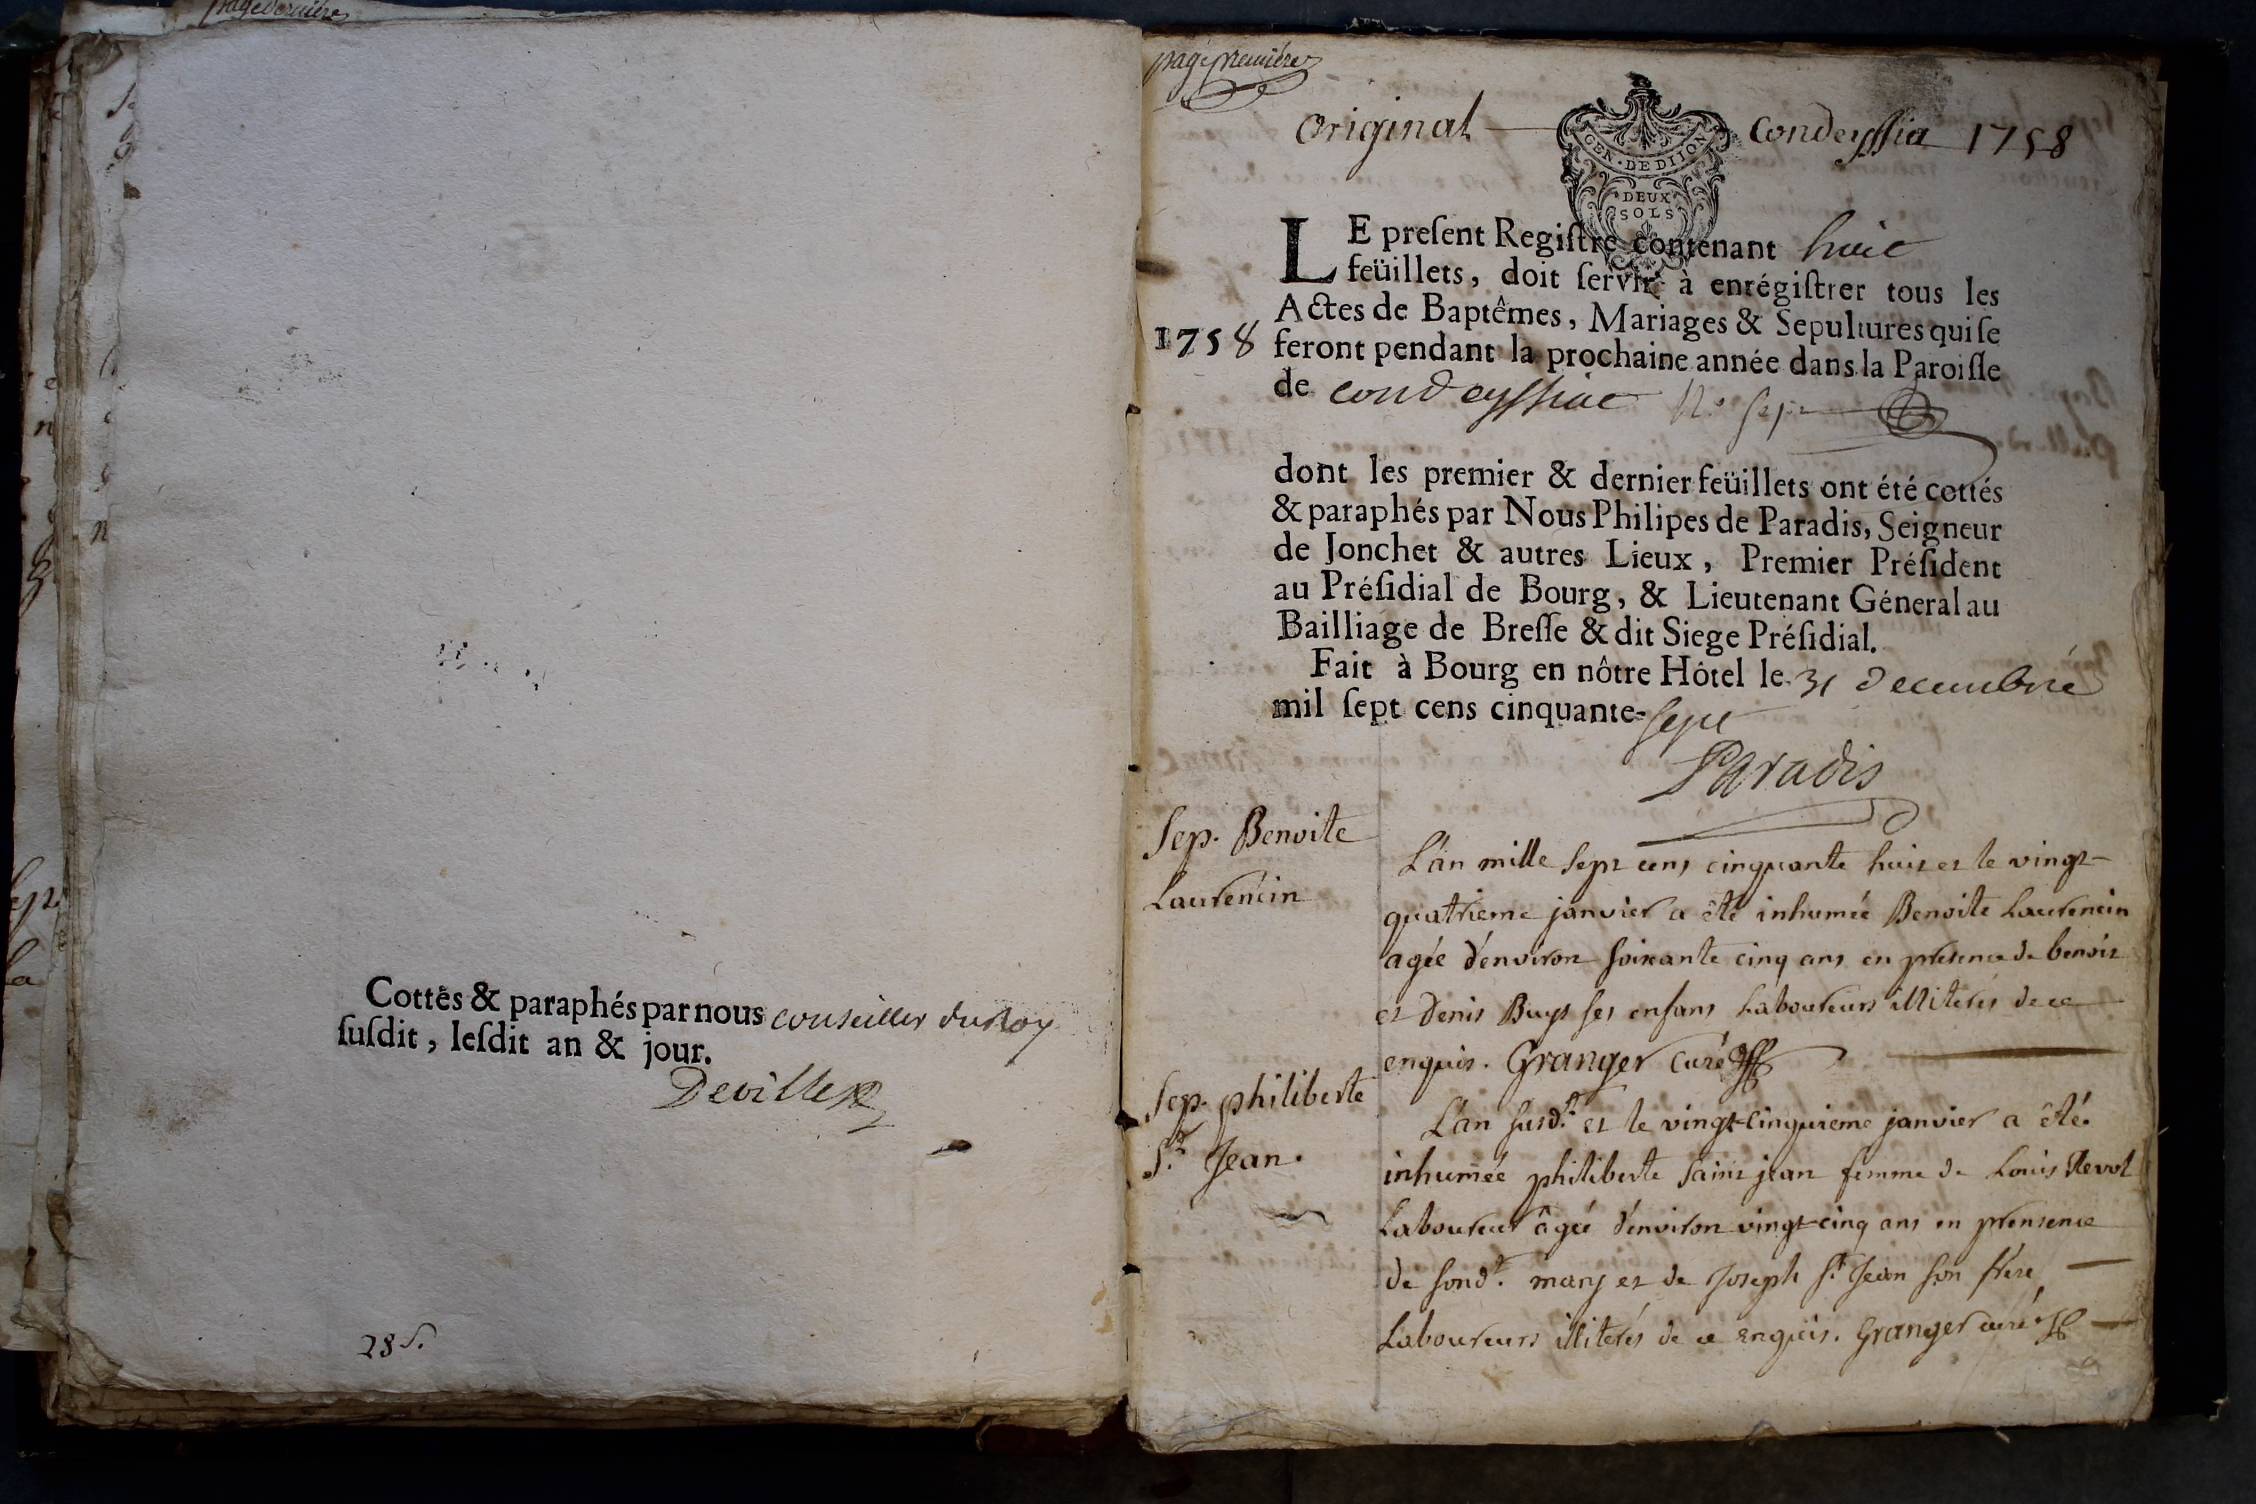 page derniere
Cottés & paraphés par nous conseiller du Roy
suſdit, leſdit an & jour.
Deville
28 s.
page premiére
original
GEN · DE DIJON
DEUX
SOLS
Condeyssia 1758
LE preſent Regiſtre contenant huit
feüillets, doit ſervir à enrégiſtrer tous les
Actes de Baptêmes, Mariages & Sepultures qui ſe
1758
feront pendant la prochaine année dans la Paroiſſe
de condeyssiat
dont les premier & dernier feüillets ont été cottés
& paraphés par Nous Philipes de Paradis, Seigneur
de Jonchet & autres Lieux, Premier Préſident
au Préſidial de Bourg, & Lieutenant Géneral au
Bailliage de Breſſe & dit Siege Préſidial.
Fait à Bourg en nôtre Hôtel le 31 decembre
mil ſept cens cinquante-sept
Paradis
Sep. Benoite
Laurencin
L'an mille sept cens cinquante huit et le vingt-
quatrieme janvier a été inhumée Benoite Laurencin
agée d'environ soixante cinq ans en presence de benoit
et Denis Buys ses enfans Laboureurs illiterés de ce
enquis. Granger Curé
Sep. philiberte
St Jean.
L'an susdt. et le vingt-cinquieme janvier a été
inhumée philiberte saint jean femme de Louis Revol
Laboureur âgée d'environ vingt-cinq ans en prensence
de sondt. mary et de Joseph St Jean son frere
Laboureurs illiterés de ce enquis. Granger curé